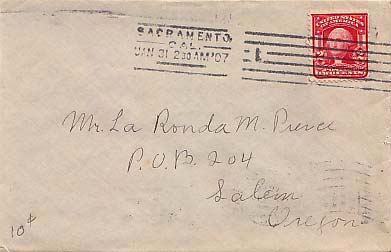 SACRAMENTO,
CAL.
JAN 31 2 30 AM '07
UNITED STATES
OF AMERICA
TWO CENTS
Mr. La Ronda M. Pierce
P.O.B. 204
Salem
Oregon
10¢